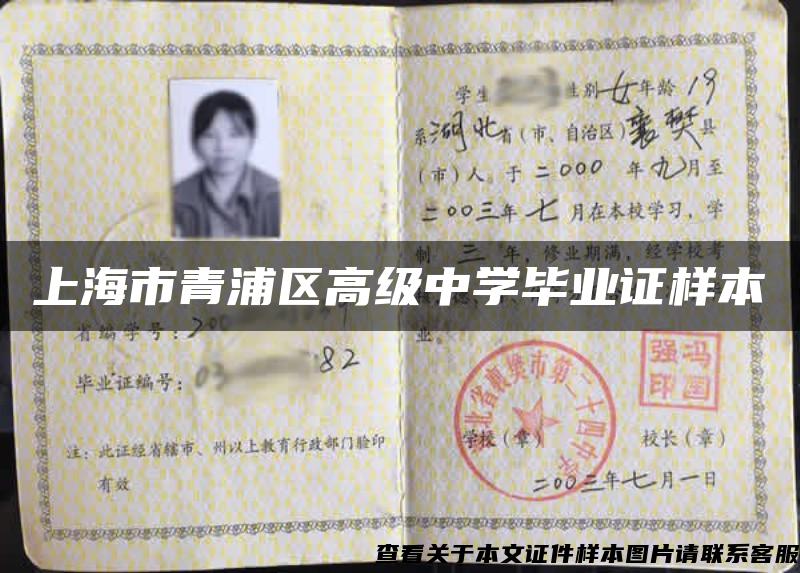 学生 性别女年龄19
系湖北省(市、自治区)襄樊县
(市)人。于二000年九月至
二00三年七月在本校学习,学
制三年,修业期满,经学校考
上海市青浦区高级中学毕业证样本
业。
省编学号:200
毕业证编号:03 82
注:此证经省辖市、州以上教育行政部门验印
有效
湖北省襄樊市第二十四中学
冯国强印
学校(章)
校长(章)
二00三年七月一日
查看关于本文证件样本图片请联系客服